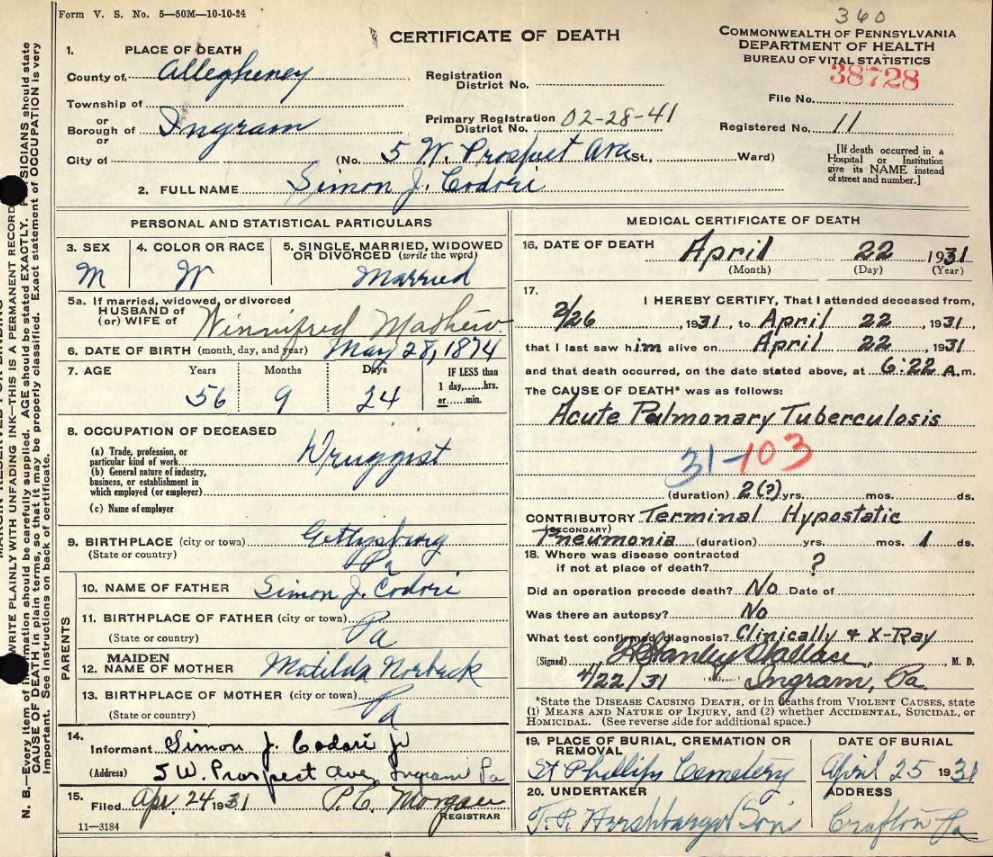 Form V. S. No. 5—50M—10-10-24
360
CERTIFICATE OF DEATH
COMMONWEALTH OF PENNSYLVANIA
DEPARTMENT OF HEALTH
BUREAU OF VITAL STATISTICS
38728
File No.
Registered No. 11
[If death occurred in a
Hospital or Institution
give its NAME instead
of street and number.]
1. PLACE OF DEATH
County of Allegheney
Township of
or
Borough of Ingram
City of
Registration
District No.
Primary Registration
District No. 02-28-41
(No. 5 W. Prospect Ave St., Ward)
2. FULL NAME Simon J. Codori
PERSONAL AND STATISTICAL PARTICULARS
3. SEX
M
4. COLOR OR RACE
W
5. SINGLE, MARRIED, WIDOWED
OR DIVORCED (write the word)
Married
5a. If married, widowed, or divorced
HUSBAND of
(or) WIFE of Winnifred Mathew
6. DATE OF BIRTH (month, day, and year) May 28, 1874
7. AGE Years Months Days
56 9 24
IF LESS than
1 day,......hrs.
or......min.
8. OCCUPATION OF DECEASED
(a) Trade, profession, or
particular kind of work
Druggist
(b) General nature of industry,
business, or establishment in
which employed (or employer)
(c) Name of employer
9. BIRTHPLACE (city or town) Gettysburg
(State or country) Pa
PARENTS
10. NAME OF FATHER Simon J. Codori
11. BIRTHPLACE OF FATHER (city or town)
(State or country) Pa
12. MAIDEN
NAME OF MOTHER Matilda Norbeck
13. BIRTHPLACE OF MOTHER (city or town)
(State or country) Pa
14.
Informant Simon J. Codori Jr
(Address) 5 W. Prospect Ave, Ingram Pa
15.
Filed Apr. 24 1931 P. C. Morgan
REGISTRAR
11—3184
MEDICAL CERTIFICATE OF DEATH
16. DATE OF DEATH April 22 1931
(Month) (Day) (Year)
17.
I HEREBY CERTIFY, That I attended deceased from,
2/26, 1931, to April 22, 1931,
that I last saw him alive on April 22, 1931
and that death occurred, on the date stated above, at 6:22 A.m.
The CAUSE OF DEATH* was as follows:
Acute Pulmonary Tuberculosis
31-103
(duration) 2(?) yrs. mos. ds.
CONTRIBUTORY Terminal Hypostatic
(SECONDARY)
Pneumonia (duration) yrs. mos. 1 ds.
18. Where was disease contracted
if not at place of death? ?
Did an operation precede death? No Date of
Was there an autopsy? No
What test confirmed diagnosis? Clinically & X-Ray
(Signed) Stanley Wallace, M. D.
4/22/31 Ingram, Pa.
*State the DISEASE CAUSING DEATH, or in deaths from VIOLENT CAUSES, state
(1) MEANS AND NATURE OF INJURY, and (2) whether ACCIDENTAL, SUICIDAL, or
HOMICIDAL. (See reverse side for additional space.)
19. PLACE OF BURIAL, CREMATION OR
REMOVAL
St Phillips Cemetery
DATE OF BURIAL
April 25 1931
20. UNDERTAKER
Harshbarger Son
ADDRESS
Crafton Pa
WRITE PLAINLY WITH UNFADING INK—THIS IS A PERMANENT RECORD
N. B.—Every item of information should be carefully supplied. AGE should be stated EXACTLY. PHYSICIANS should state
CAUSE OF DEATH in plain terms, so that it may be properly classified. Exact statement of OCCUPATION is very
important. See instructions on back of certificate.